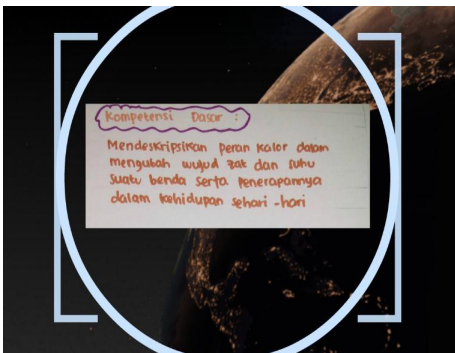 Kompetensi Dasar :
Mendeskripsikan peran kalor dalam
mengubah wujud zat dan suhu
suatu benda serta penerapannya
dalam kehidupan sehari-hari